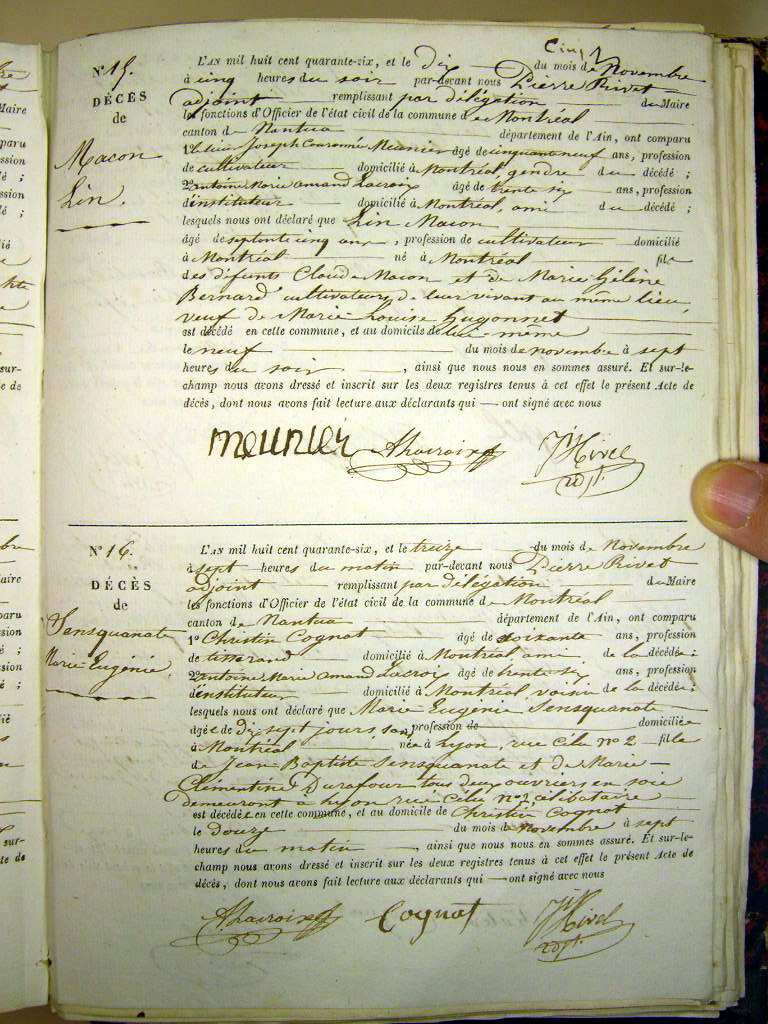 Cinq
N° 15.
DÉCÈS
de
Macon
Lin.
L'AN mil huit cent quarante-six, et le dix du mois de Novembre
à cinq heures du soir par-devant nous Pierre Rivet
adjoint remplissant par délégation du Maire
les fonctions d'Officier de l'état civil de la commune de Montréal
canton de Nantua département de l'Ain, ont comparu
1° Sieur Joseph Couronnée Meunier âgé de cinquante neuf ans, profession
de cultivateur domicilié à Montréal, gendre du décédé ;
2° Antoine Marie amand Lacroix âgé de trente six ans, profession
d'instituteur domicilié à Montréal, ami du décédé ;
lesquels nous ont déclaré que Lin Macon
âgé de septante cinq ans, profession de cultivateur domicilié
à Montréal né à Montréal fils
des défunts Claude Macon et de Marie Hélène
Bernard cultivateurs de leur vivant au même lieu,
veuf de Marie Louise Gugonnet
est décédé en cette commune, et au domicile de lui-même
le neuf du mois de novembre à sept
heures du soir, ainsi que nous nous en sommes assuré. Et sur-le-
champ nous avons dressé et inscrit sur les deux registres tenus à cet effet le présent Acte de
décès, dont nous avons fait lecture aux déclarants qui — ont signé avec nous
meunier ALacroix Rivet adjt.
N° 16.
DÉCÈS
de
Sensquanate
Marie Eugénie.
L'AN mil huit cent quarante-six, et le treize du mois de Novembre
à sept heures du matin par-devant nous Pierre Rivet
adjoint remplissant par délégation du Maire
les fonctions d'Officier de l'état civil de la commune de Montréal
canton de Nantua département de l'Ain, ont comparu
1° Christin Cognat âgé de soixante ans, profession
de tisserand domicilié à Montréal ami de la décédée ;
2° Antoine Marie amand Lacroix âgé de trente six ans, profession
d'instituteur domicilié à Montréal voisin de la décédée ;
lesquels nous ont déclaré que Marie Eugénie Sensquanate
âgée de dix sept jours, san profession de domiciliée
à Montréal née à Lyon, rue Célu n° 2 fille
de Jean Baptiste Sensquanate et de Marie
Clémentine Durafour tous deux ouvriers en soie
demeurant à Lyon rue Célu n° 2 célibataire
est décédée en cette commune, et au domicile de Christin Cognat
le douze du mois de novembre à sept
heures du matin, ainsi que nous nous en sommes assuré. Et sur-le-
champ nous avons dressé et inscrit sur les deux registres tenus à cet effet le présent Acte de
décès, dont nous avons fait lecture aux déclarants qui — ont signé avec nous
ALacroix Cognat Rivet adjt.